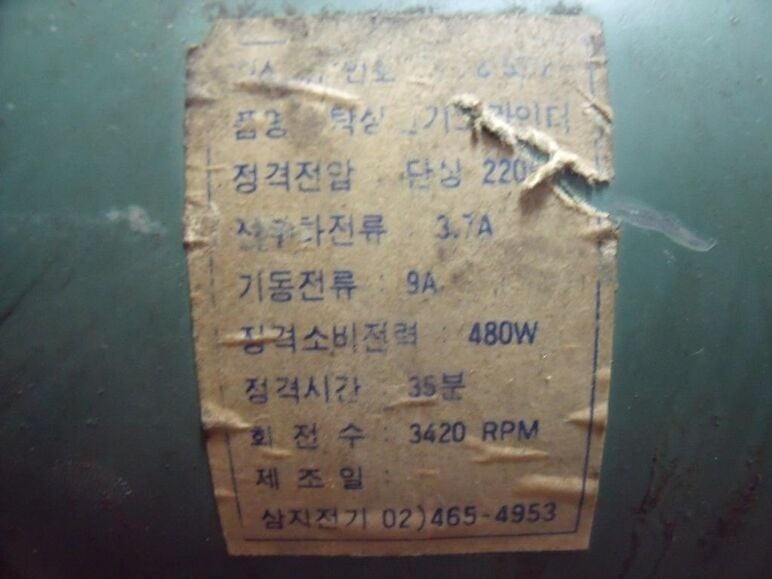 품명 탁상 그라인더
정격전압 : 단상 220
전부하전류 : 3.7A
기동전류 : 9A
정격소비전력 : 480W
정격시간 : 35분
회 전 수 : 3420 RPM
제 조 일 :
삼지전기 02)465-4953